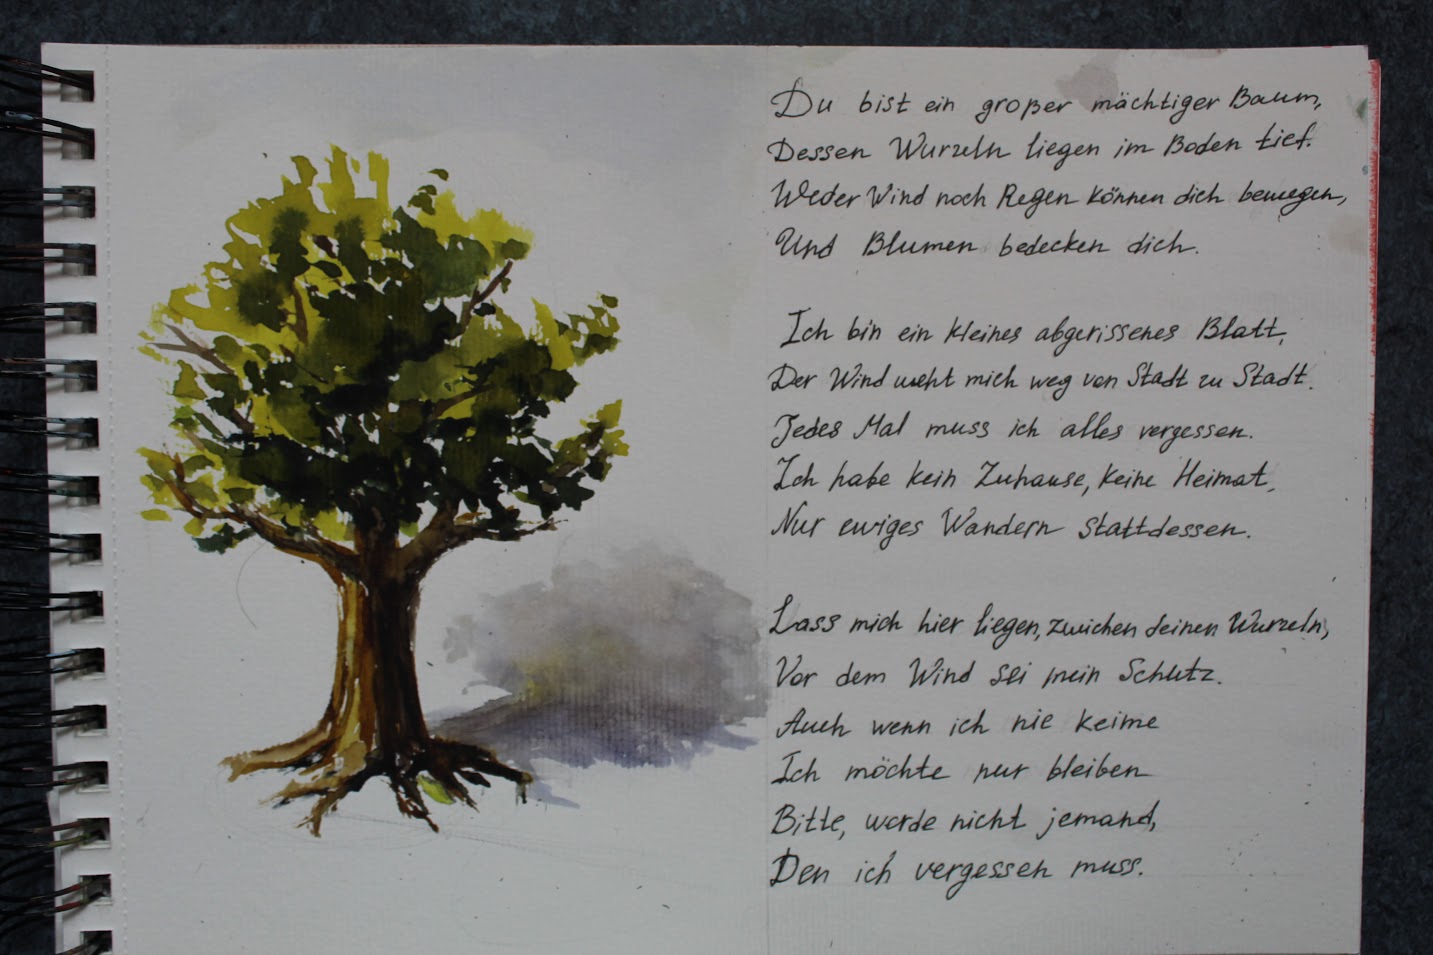 Du bist ein großer mächtiger Baum,
Dessen Wurzeln liegen im Boden tief.
Weder Wind noch Regen können dich bewegen,
Und Blumen bedecken dich.
Ich bin ein kleines abgerissenes Blatt,
Der Wind weht mich weg von Stadt zu Stadt.
Jedes Mal muss ich alles vergessen.
Ich habe kein Zuhause, keine Heimat,
Nur ewiges Wandern stattdessen.
Lass mich hier liegen, zwichen deinen Wurzeln,
Vor dem Wind sei mein Schutz.
Auch wenn ich nie keime
Ich möchte nur bleiben
Bitte, werde nicht jemand,
Den ich vergessen muss.